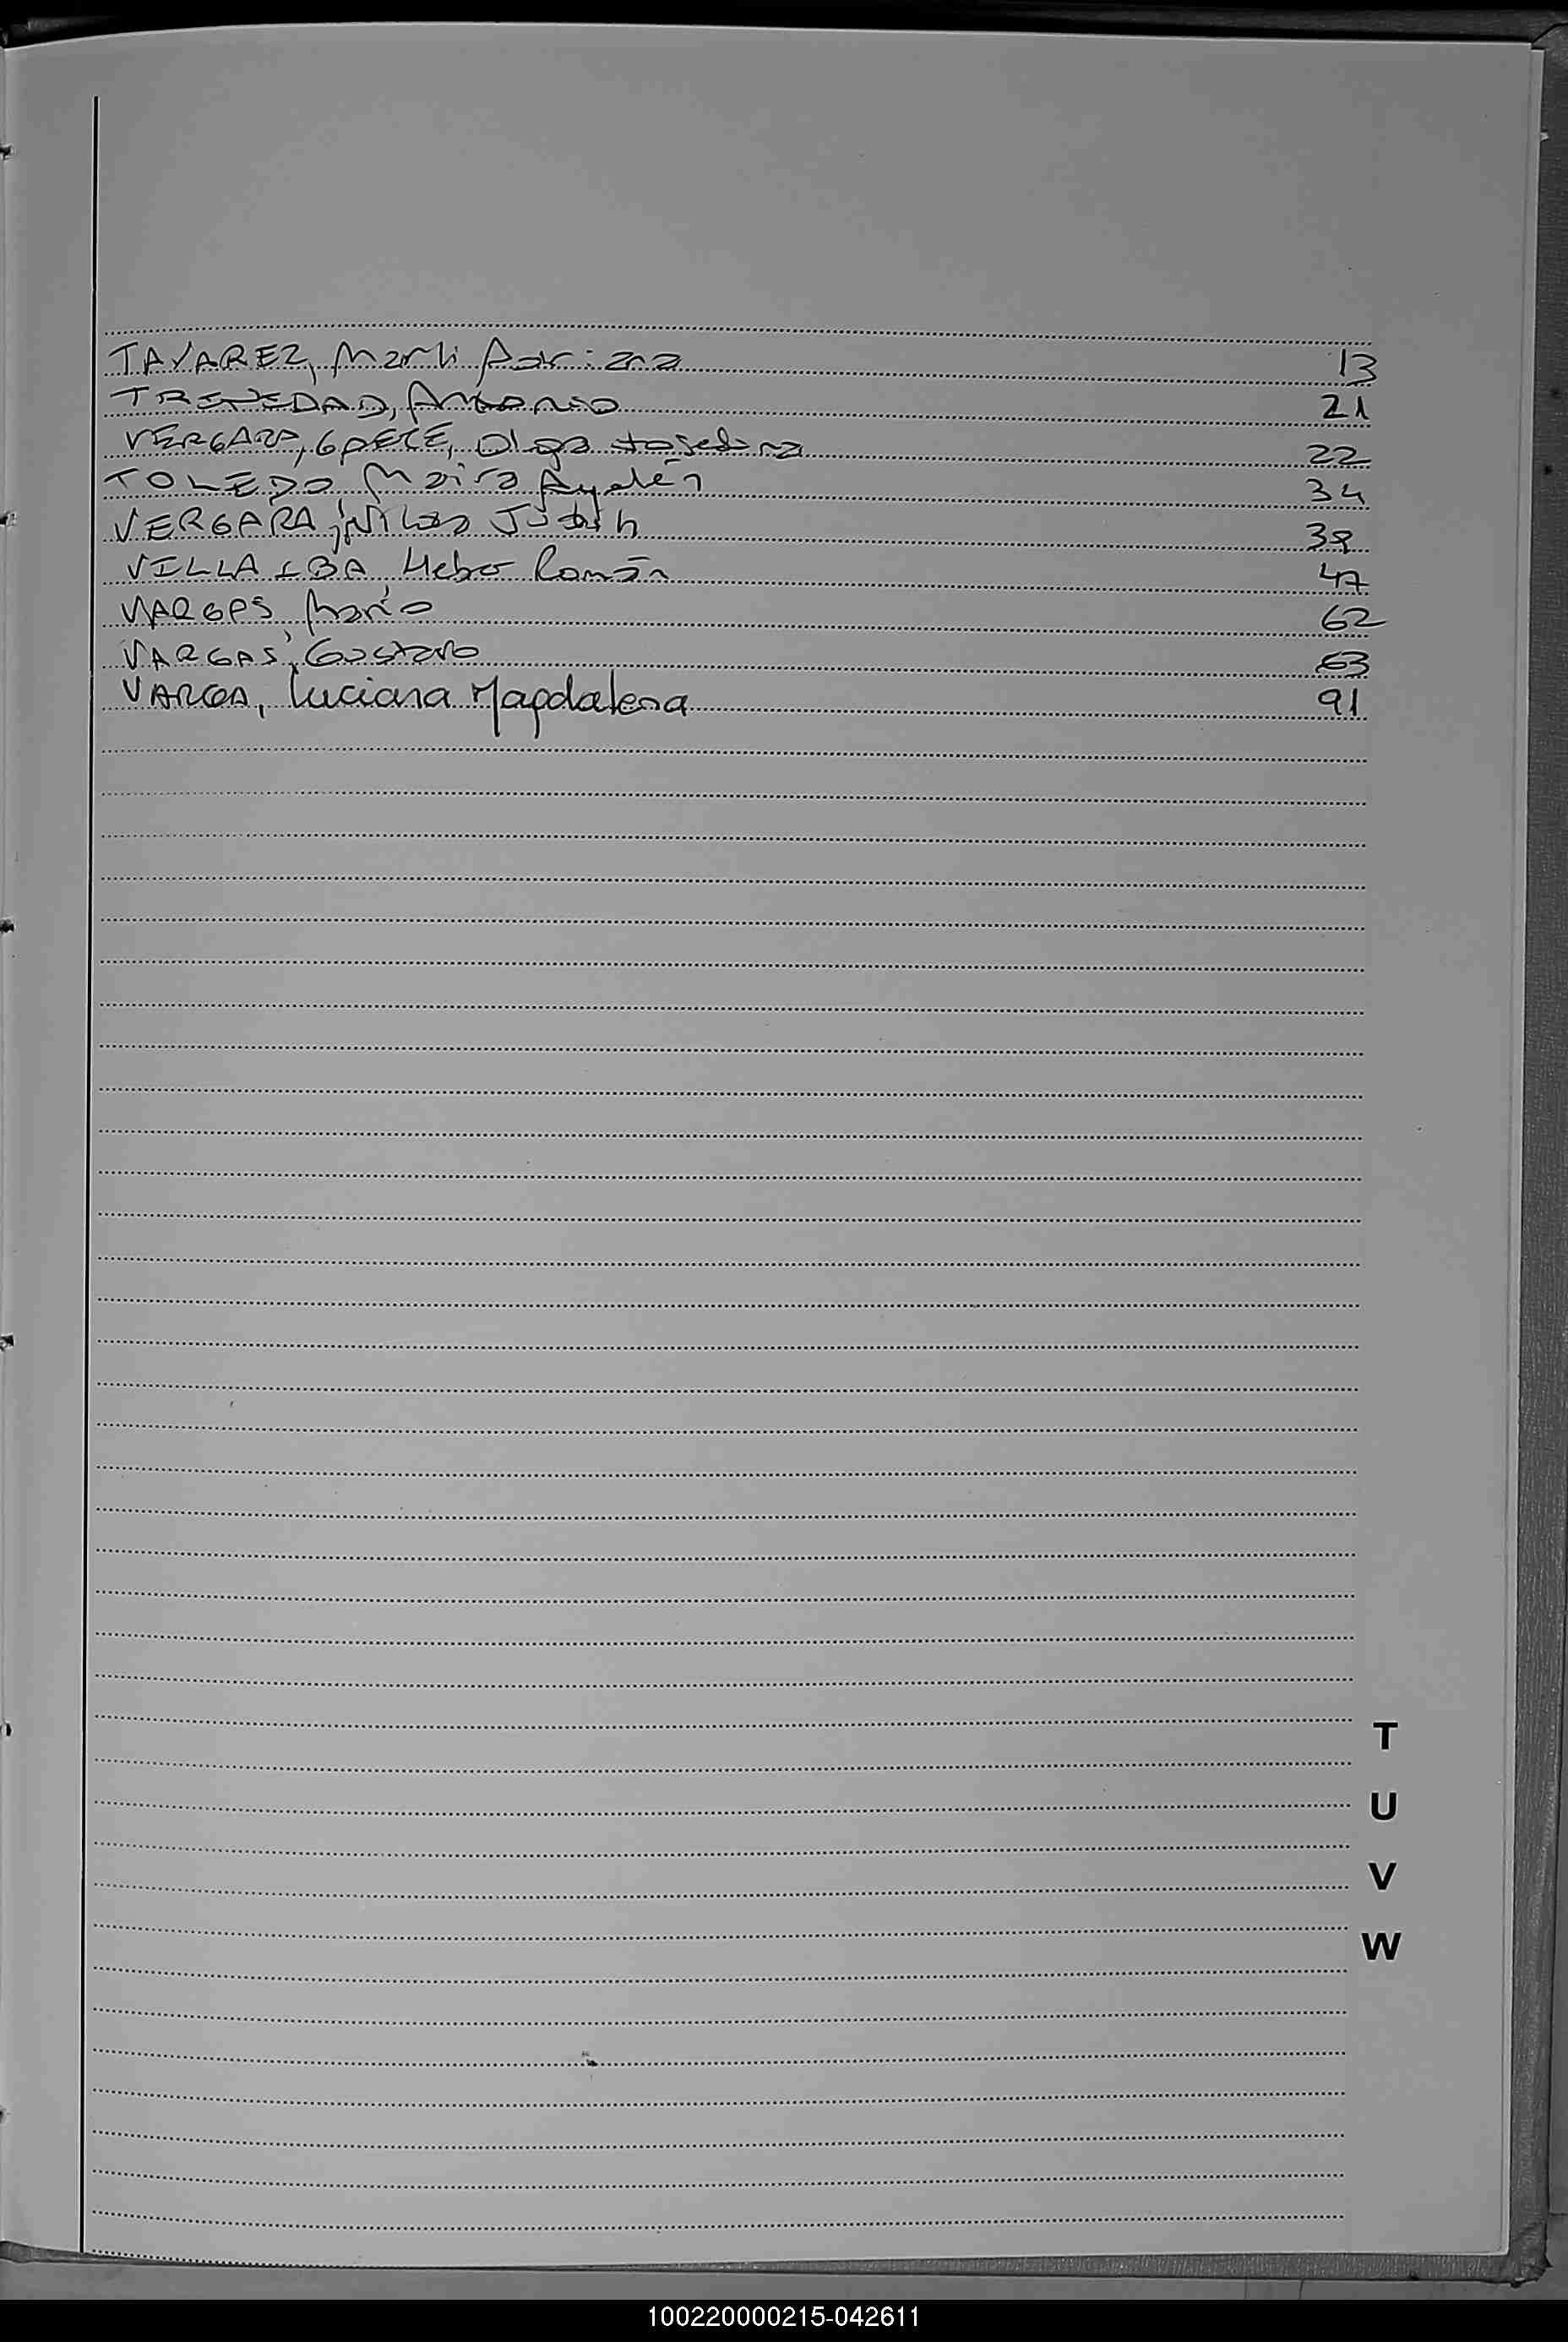 TAVAREZ, Marli Adriana 13
TRENEDAD, Antonio 21
VERGARA, GAETE, Olga Josefina 22
TOLEDO, Maira Ayelén 34
VERGARA, Judith 38
VILLALBA, Heber Román 47
VARGAS, Mario 62
VARGAS, Gustavo 63
VARGA, Luciana Magdalena 91
T
U
V
W
100220000215-042611